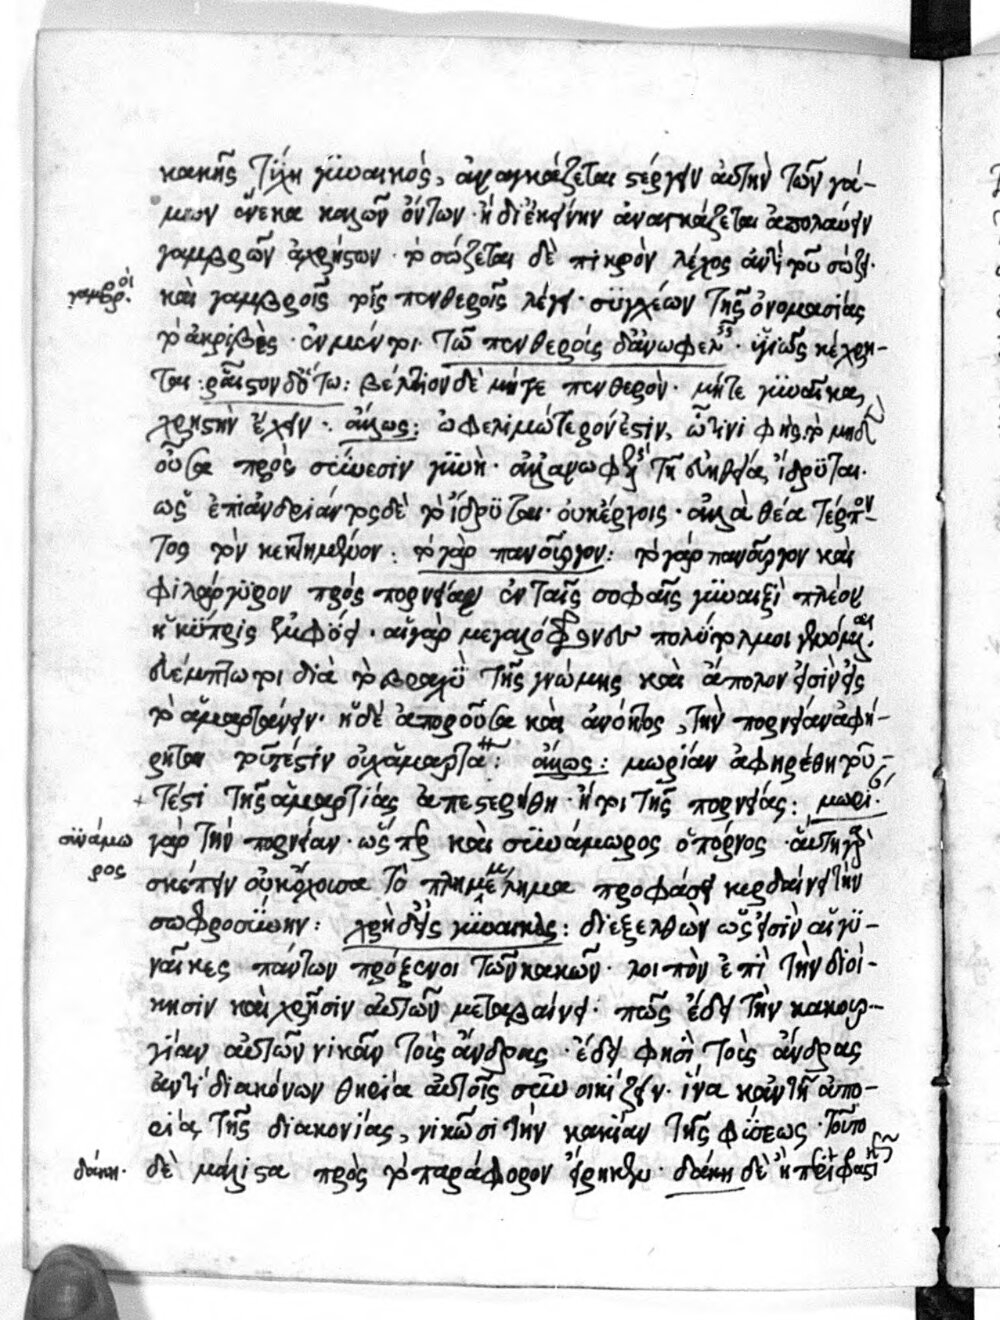 κακῆς τύχη γυναικός, ἀναγκάζεται στέργειν αὐτὴν τῶν γά-
μων ἕνεκα καλῶν ὄντων· ἢ διεκείνην ἀναγκάζεται ἀπολαύειν
γαμβρῶν ἀχρήστων· τὸ σώζεται δὲ πικρὸν λέχος ἀντὶ τοῦ σώζει·
γαμβροί· καὶ γαμβροῖς τοῖς πενθεροῖς λέγει· συγχέων τῆς ὀνομασίας
τὸ ἀκριβὲς· ἐν μέντοι τῶ πενθεροῖς δ' ἀνωφελ· κέχρη-
ται: ῥᾶστον δ' ὅτω: βέλτιον δὲ μήτε πενθερὸν· μήτε γυναῖκα,
χρηστὴν ἔχειν· ἄλλως: ὠφελιμώτερον ἐστὶν, ὧτινι φησὶ τὸ μηδὲν
οὖσα πρὸς σύνεσιν γυνὴ· ἀλλ' ἀνωφελὴς τῆ εὐηθεία ἵδρυται·
ὡς ἐπὶ ἀνδριάντος δὲ τὸ ἵδρυται· οὐκ ἔργοις· ἀλλὰ θέα τέρπον-
τος τὸν κεκτημένον: τὸ γὰρ πανοῦργον: τὸ γὰρ πανοῦργον καὶ
φιλάργυρον πρὸς πορνείαν ἐν ταῖς σοφαῖς γυναιξὶ πλέον
ἡ κύπρις ἐμφύει· αἱ γὰρ πολύτολμοι
διὰ τὸ βραχὺ τῆς γνώμης καὶ εἰσὶν εἰς
τὸ ἁμαρτάνειν· ἡ δὲ ἀποροῦσα καὶ ἀνόητος, τὴν πορνείαν ἀφή-
ρηται τοῦτέστιν οὐχ ἁμαρτάνει: ἄλλως: μωρίαν ἀφηρέθη τοῦ-
τέστι τῆς ἁμαρτίας ἀπεστερήθη· ἤτοι τῆς πορνείας: μωρί·
συνάμωρος γὰρ τὴν πορνείαν· ὥσπερ καὶ συνάμωρος ὁ πόρνος· αὕτη γὰρ
σκέπειν οὐκ ἔχουσα τὸ πλημμέλημα προφάσει κερδαίνει τὴν
σωφροσύνην: χρὴ δ' εἰς γυναῖκας: διεξελθὼν ὡς εἰσὶν αἱ γυ-
ναῖκες πάντων πρόξενοι τῶν κακῶν· λοιπὸν ἐπὶ τὴν διοί-
κησιν καὶ χρῆσιν αὐτῶν μεταβαίνει· πῶς ἔδει τὴν κακουρ-
γίαν αὐτῶν νικᾶν τοὺς ἄνδρας· ἔδει φησὶ τοὺς ἄνδρας
ἀντὶ διακόνων θηρία αὐτοῖς συνοικίζειν· ἵνα κἀν τῆ ἀπο-
ρία τῆς διακονίας, νικῶσι τὴν κακίαν τῆς φύσεως· τοῦτο
δάκη· δὲ μάλιστα πρὸς τὸ παράφορον εἴρηκεν· δάκη δὲ